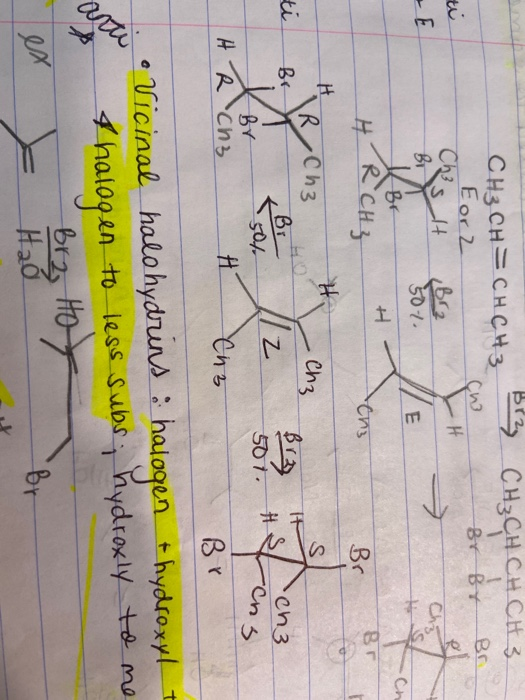 CH3CH=CHCH3 Br2 CH3CHCHCH3
Br Br
E or Z
CH3 S H
Br
Br
H R CH3
Br2
50%
H
CH3
E
H
CH3
Br
S
Br
H R CH3
Br
Br
H R CH3
Br
50%
H H
CH3 Z CH3
Br2
50%
H S Br
H S CH3
Br CH3
anti
• Vicinal halohydrins : halogen + hydroxyl +
halogen to less subs; hydroxly to
ex
Br2
H2O
HO
Br